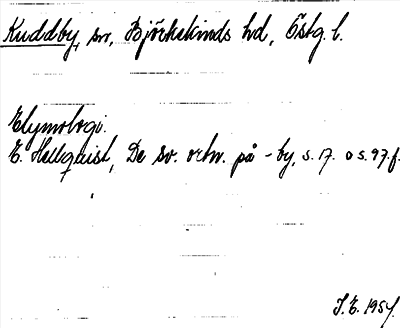 Kuddby, sn, Björkekinds hd, Östg. l.
Etymologi.
E. Hellquist, De sv. ortn. på -by, s. 17. o s. 97.f.
I.E. 1954.